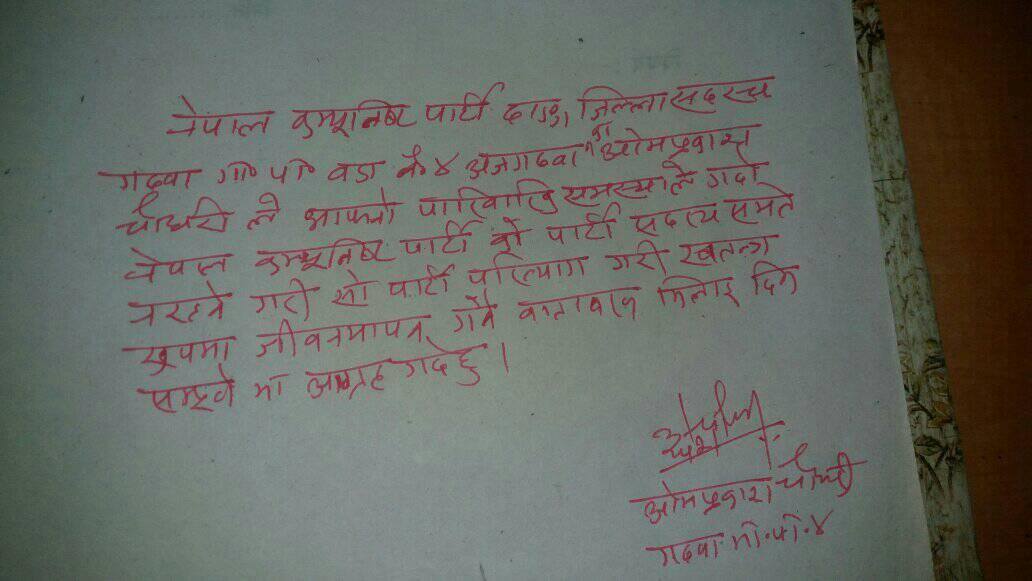 नेपाल कम्यूनिष्ट पार्टी दाङ, जिल्ला सदस्य
गढवा गा॰ पा॰ वडा नं ४ अजगढवा का ओमप्रकाश
चौधरी ले आफ्नो पारिवारिक समस्याले गर्दा
नेपाल कम्यूनिष्ट पार्टी को पार्टी सदस्य समेत
नरहने गरी सो पार्टी परित्याग गरी स्वतन्त्र
रूपमा जीवनयापन गर्ने वातावरण मिलाइ दिन
सम्पूर्ण मा आग्रह गर्दछु ।
ओमप्रकाश चौधरी
गढवा. गा. पा. ४